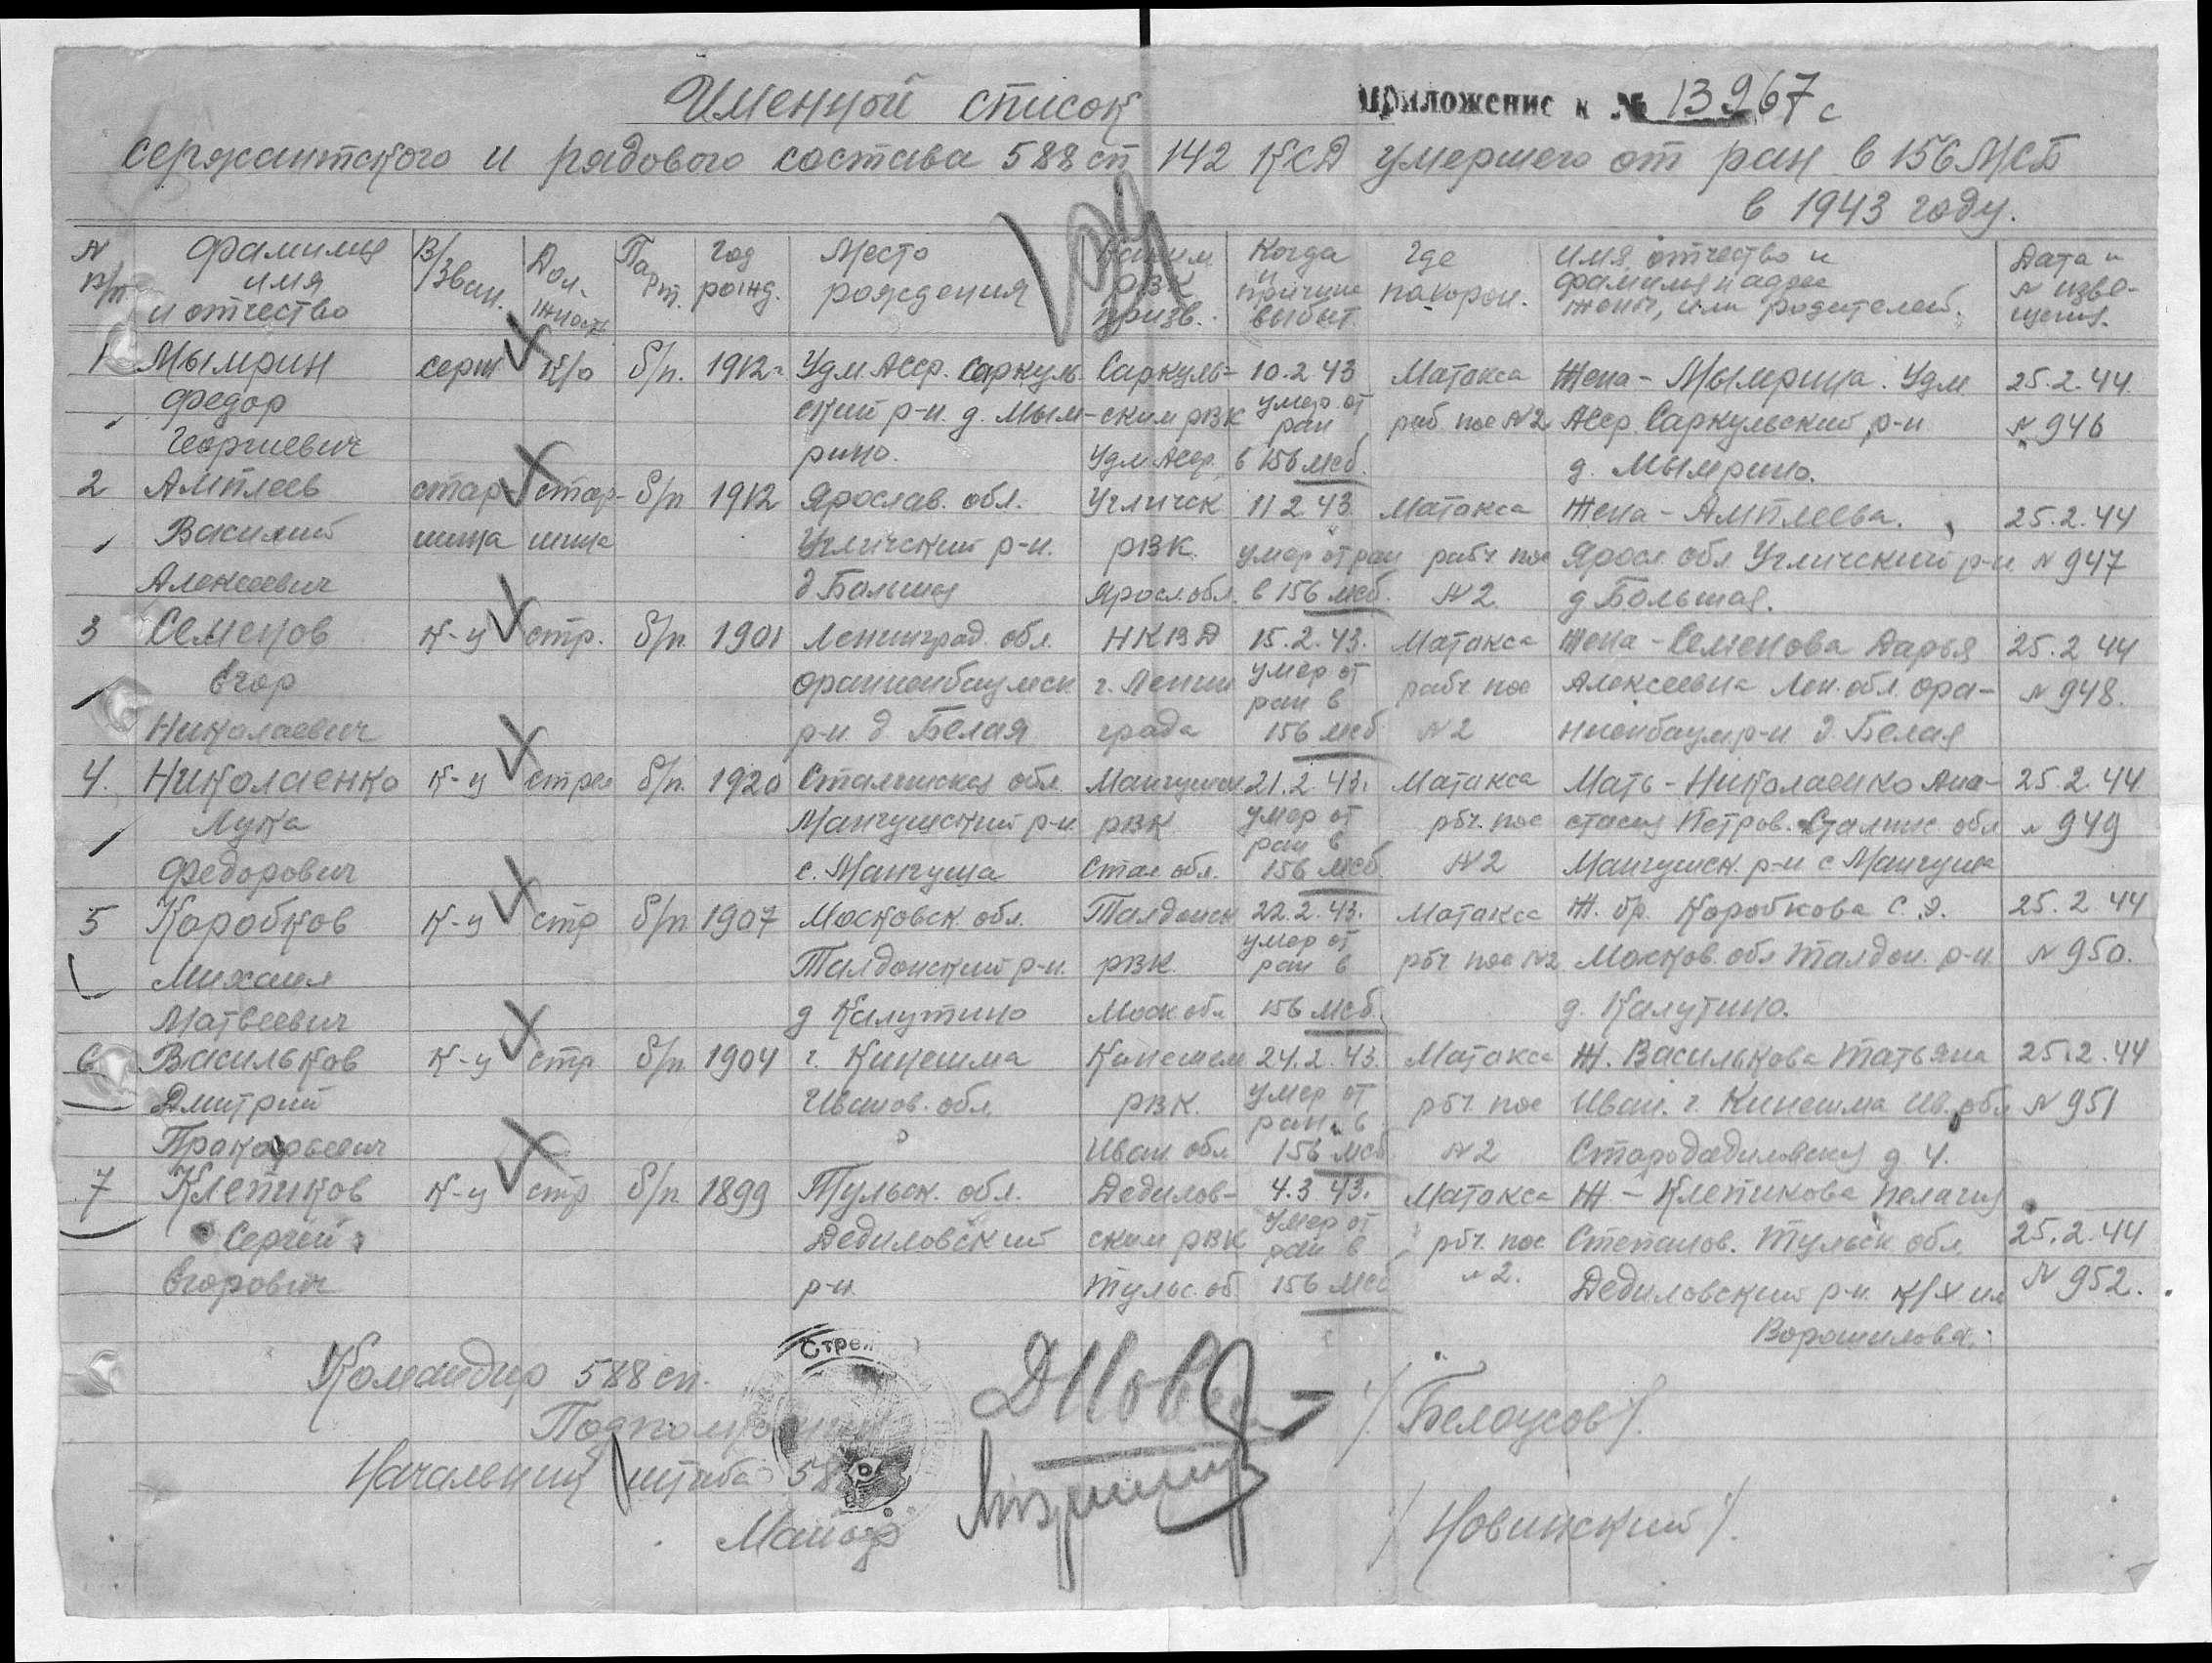 Именной список
приложение к № 13967с
сержантского и рядового состава 588 сп 142 КСД умершего от ран в 156 МСБ
в 1943 году.
N п/п | Фамилия имя и отчество | В/зван. | Должность | Парт. | Год рожд. | Место рождения | Каким РВК призв. | Когда и причина выбыт | Где похорон. | Имя, отчество и фамилия и адрес жены, или родителей. | Дата и N извещения.
1 Мымрин серж к/о б/п. 1912г Удм АССР. Саркуль- Саркуль- 10.2 43 Матокса Жена - Мымрина. Удм 25.2.44.
Федор ский р-н. д. Мым- ским РВК умер от ран раб. пос N2 АССР Саркульский р-н N 946
Георгиевич рино. Удм АССР в 156 мсб. д. Мымрино.
2 Амплеев стар стар- б/п 1912 Ярослав. обл. Угличск 11 2 43 Матокса Жена - Амплеева. 25.2.44
Василий шина шина Угличский р-н. РВК. умер от ран рабч. пос Яросл. обл Угличский р-н N 947
Алексеевич д Большая Яросл обл. в 156 мсб. N2 д Большая.
3 Семенов к-ц стр. б/п. 1901 Ленинград. обл. НКВД 15.2.43. Матокса жена - Семенова Дарья 25.2 44
Егор Ораниенбаумск г. Ленин умер от ран в рабч. пос Алексеевна Лен. обл. Ора- N 948.
Николаевич р-н д Белая града 156 мсб N2 ниенбаумр-н д. Белая
4. Николаенко к-ц стрел б/п. 1920 Сталинская обл. Мангушск 21.2.43. Матокса Мать - Николаенко Ана- 25.2.44
Лука Мангушский р-н РВК умер от ран в рбч. пос стасия Петров. Сталинс. обл N 949
Федорович с. Мангуша Стал обл. 156 мсб N2 Мангушск. р-н с Мангуша
5 Коробков к-ц стр б/п 1907 Московск. обл. Талдомск 22.2.43. Матокса Ж. бр. Коробкова С. Э. 25.2 44
Михаил Талдомский р-н. РВК. умер от ран в рбч пос N2 Москов. обл Талдом. р-н. N 950.
Матвеевич д Калутино Моск обл 156 мсб. д. Калутино.
6 Васильков к-ц стр б/п 1904 г. Кинешма Кинешем 24.2.43. Матокса Ж. Василькова Татьяна 25.2.44
Дмитрий Иванов. обл. РВК. умер от ран. в рбч. пос Иван. г. Кинешма Ив. обл N 951
Прокофьевич Иван обл 156 мсб N2 д 4.
7 Клепиков к-ц стр б/п 1899 Тульск. обл. Дедилов- 4.3.43. Матокса Ж. - Клепикова Пелагия
Сергей Дедиловский ским РВК умер от ран в рбч. пос Степанов. Тульск обл. 25.2.44
Егорович р-н Тульс. об 156 мсб N2. Дедиловский р-н. к/х им N 952.
Ворошилова.
Стрел
Командир 588 сп.
Подполковник /Белоусов/.
Начальник штаба 58
Майор /Новинский/.